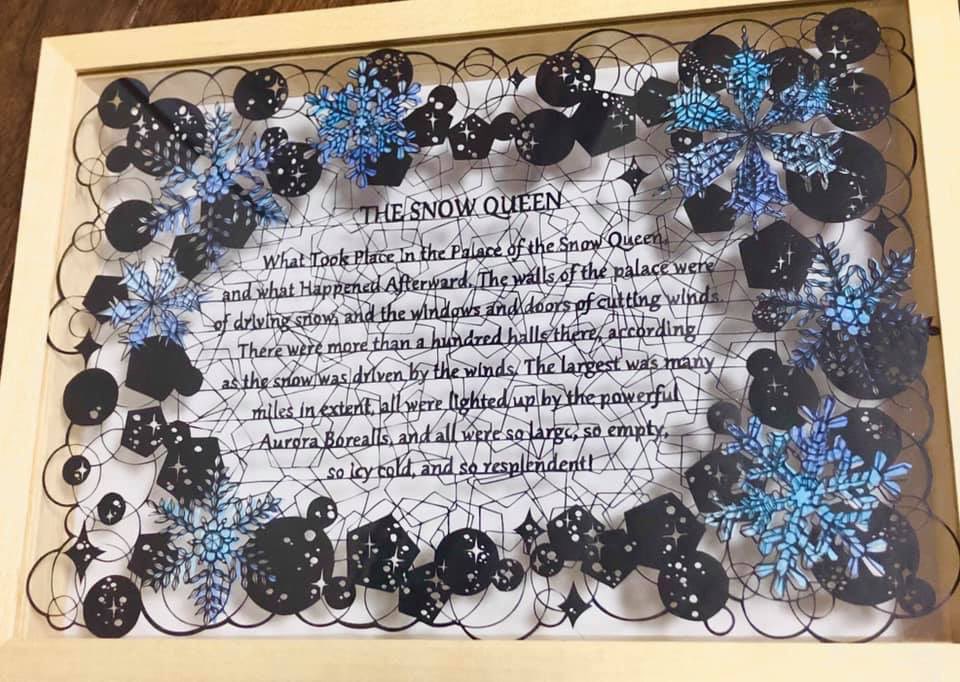 THE SNOW QUEEN
What Took Place in the Palace of the Snow Queen,
and what Happened Afterward. The walls of the palace were
of driving snow, and the windows and doors of cutting winds.
There were more than a hundred halls there, according
as the snow was driven by the winds. The largest was many
miles in extent, all were lighted up by the powerful
Aurora Borealis, and all were so large, so empty,
so icy cold, and so resplendent!